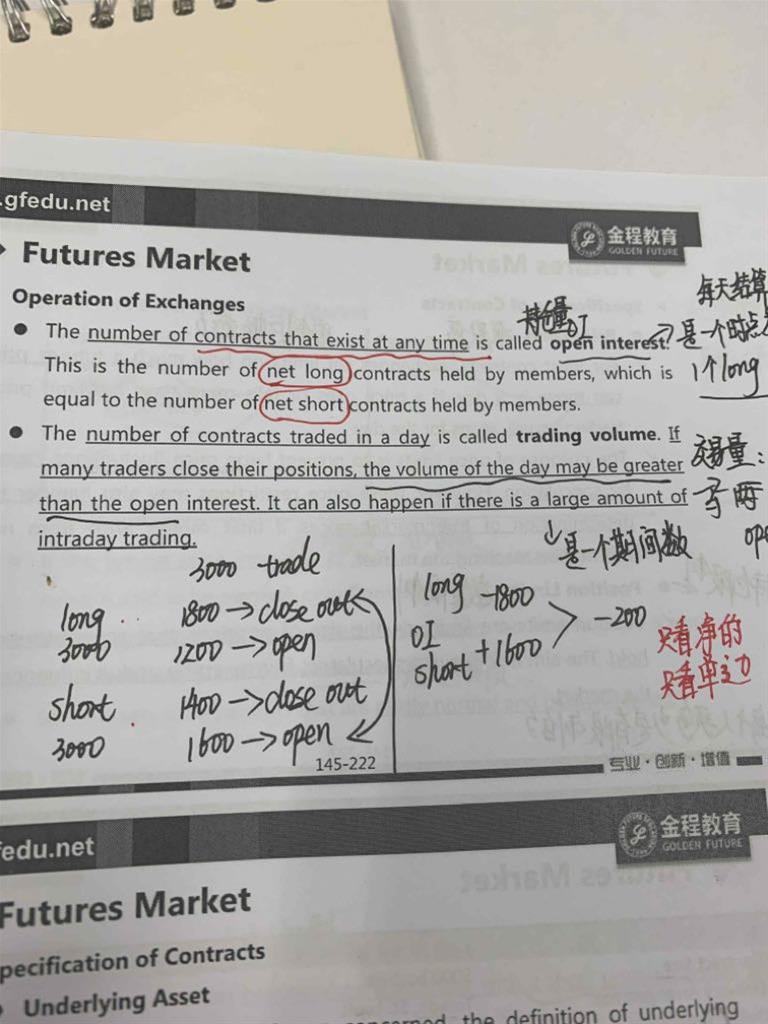 .gfedu.net
金程教育
GOLDEN FUTURE
Futures Market
每天结算
Operation of Exchanges
持仓量
OI
The number of contracts that exist at any time is called open interest.
是一个时点
This is the number of net long contracts held by members, which is
1个long
equal to the number of net short contracts held by members.
The number of contracts traded in a day is called trading volume. If
交易量:
many traders close their positions, the volume of the day may be greater
than the open interest. It can also happen if there is a large amount of
intraday trading.
是一个期间数
3000 trade
long
3000
1800 → close out
1200 → open
short
3000
1400 → close out
1600 → open
long -1800
OI
short +1600
-200
只看净的
只看单边
145-222
专业·创新·增值
edu.net
金程教育
GOLDEN FUTURE
Futures Market
pecification of Contracts
Underlying Asset
the definition of underlying